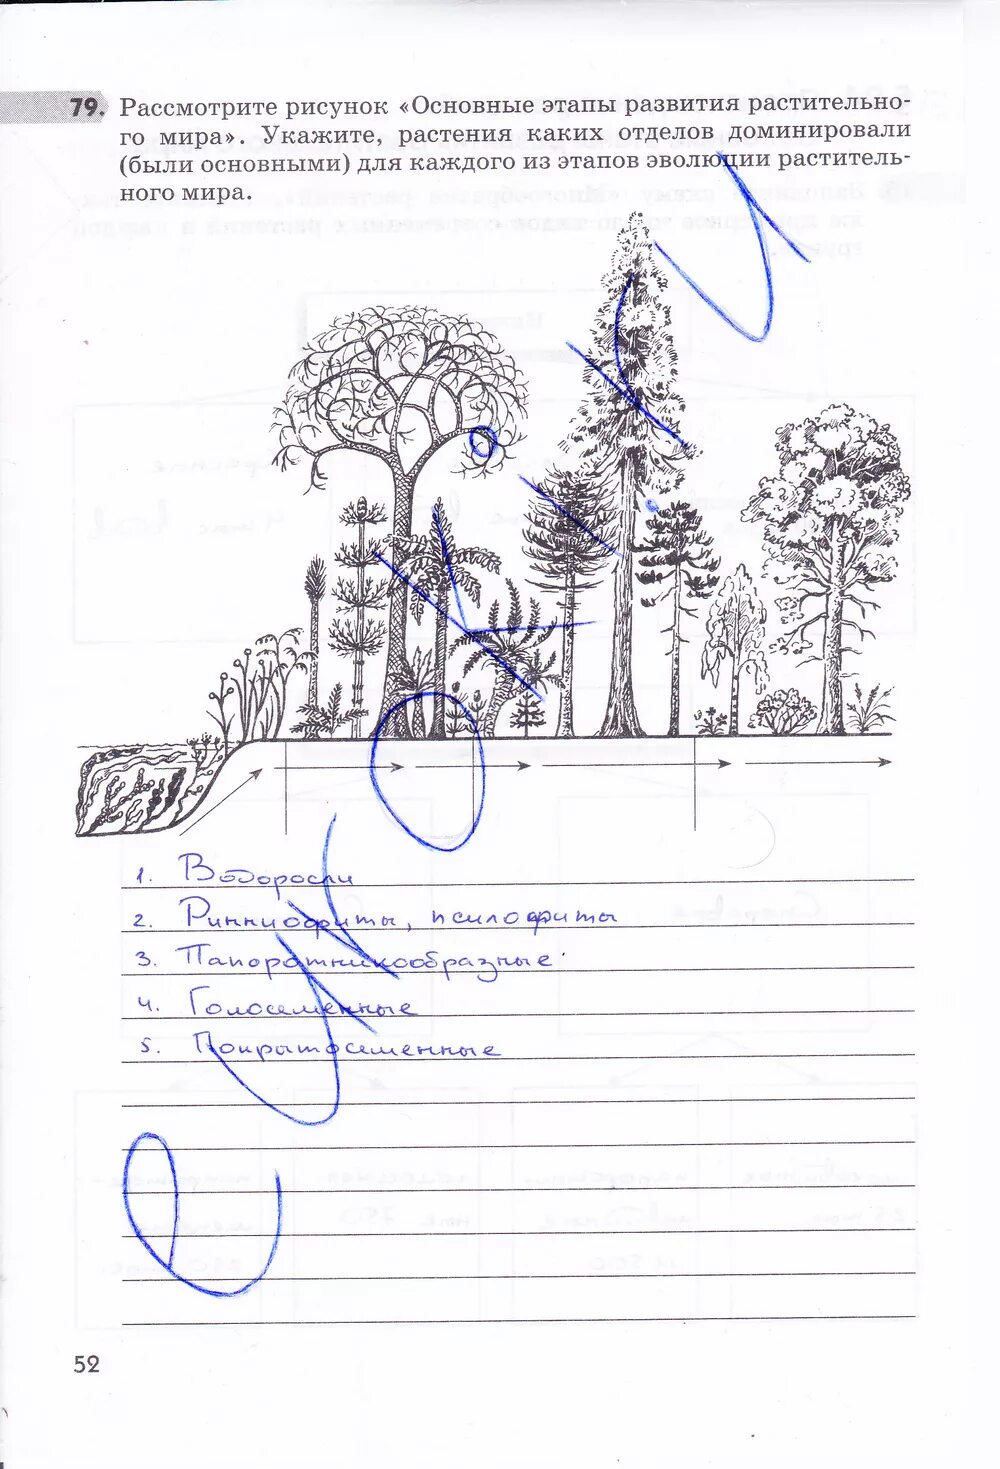 79. Рассмотрите рисунок «Основные этапы развития растительно-
го мира». Укажите, растения каких отделов доминировали
(были основными) для каждого из этапов эволюции раститель-
ного мира.
1. Водоросли
2. Риниофиты, псилофиты
3. Папоротникообразные
4. Голосеменные
5. Покрытосеменные
52